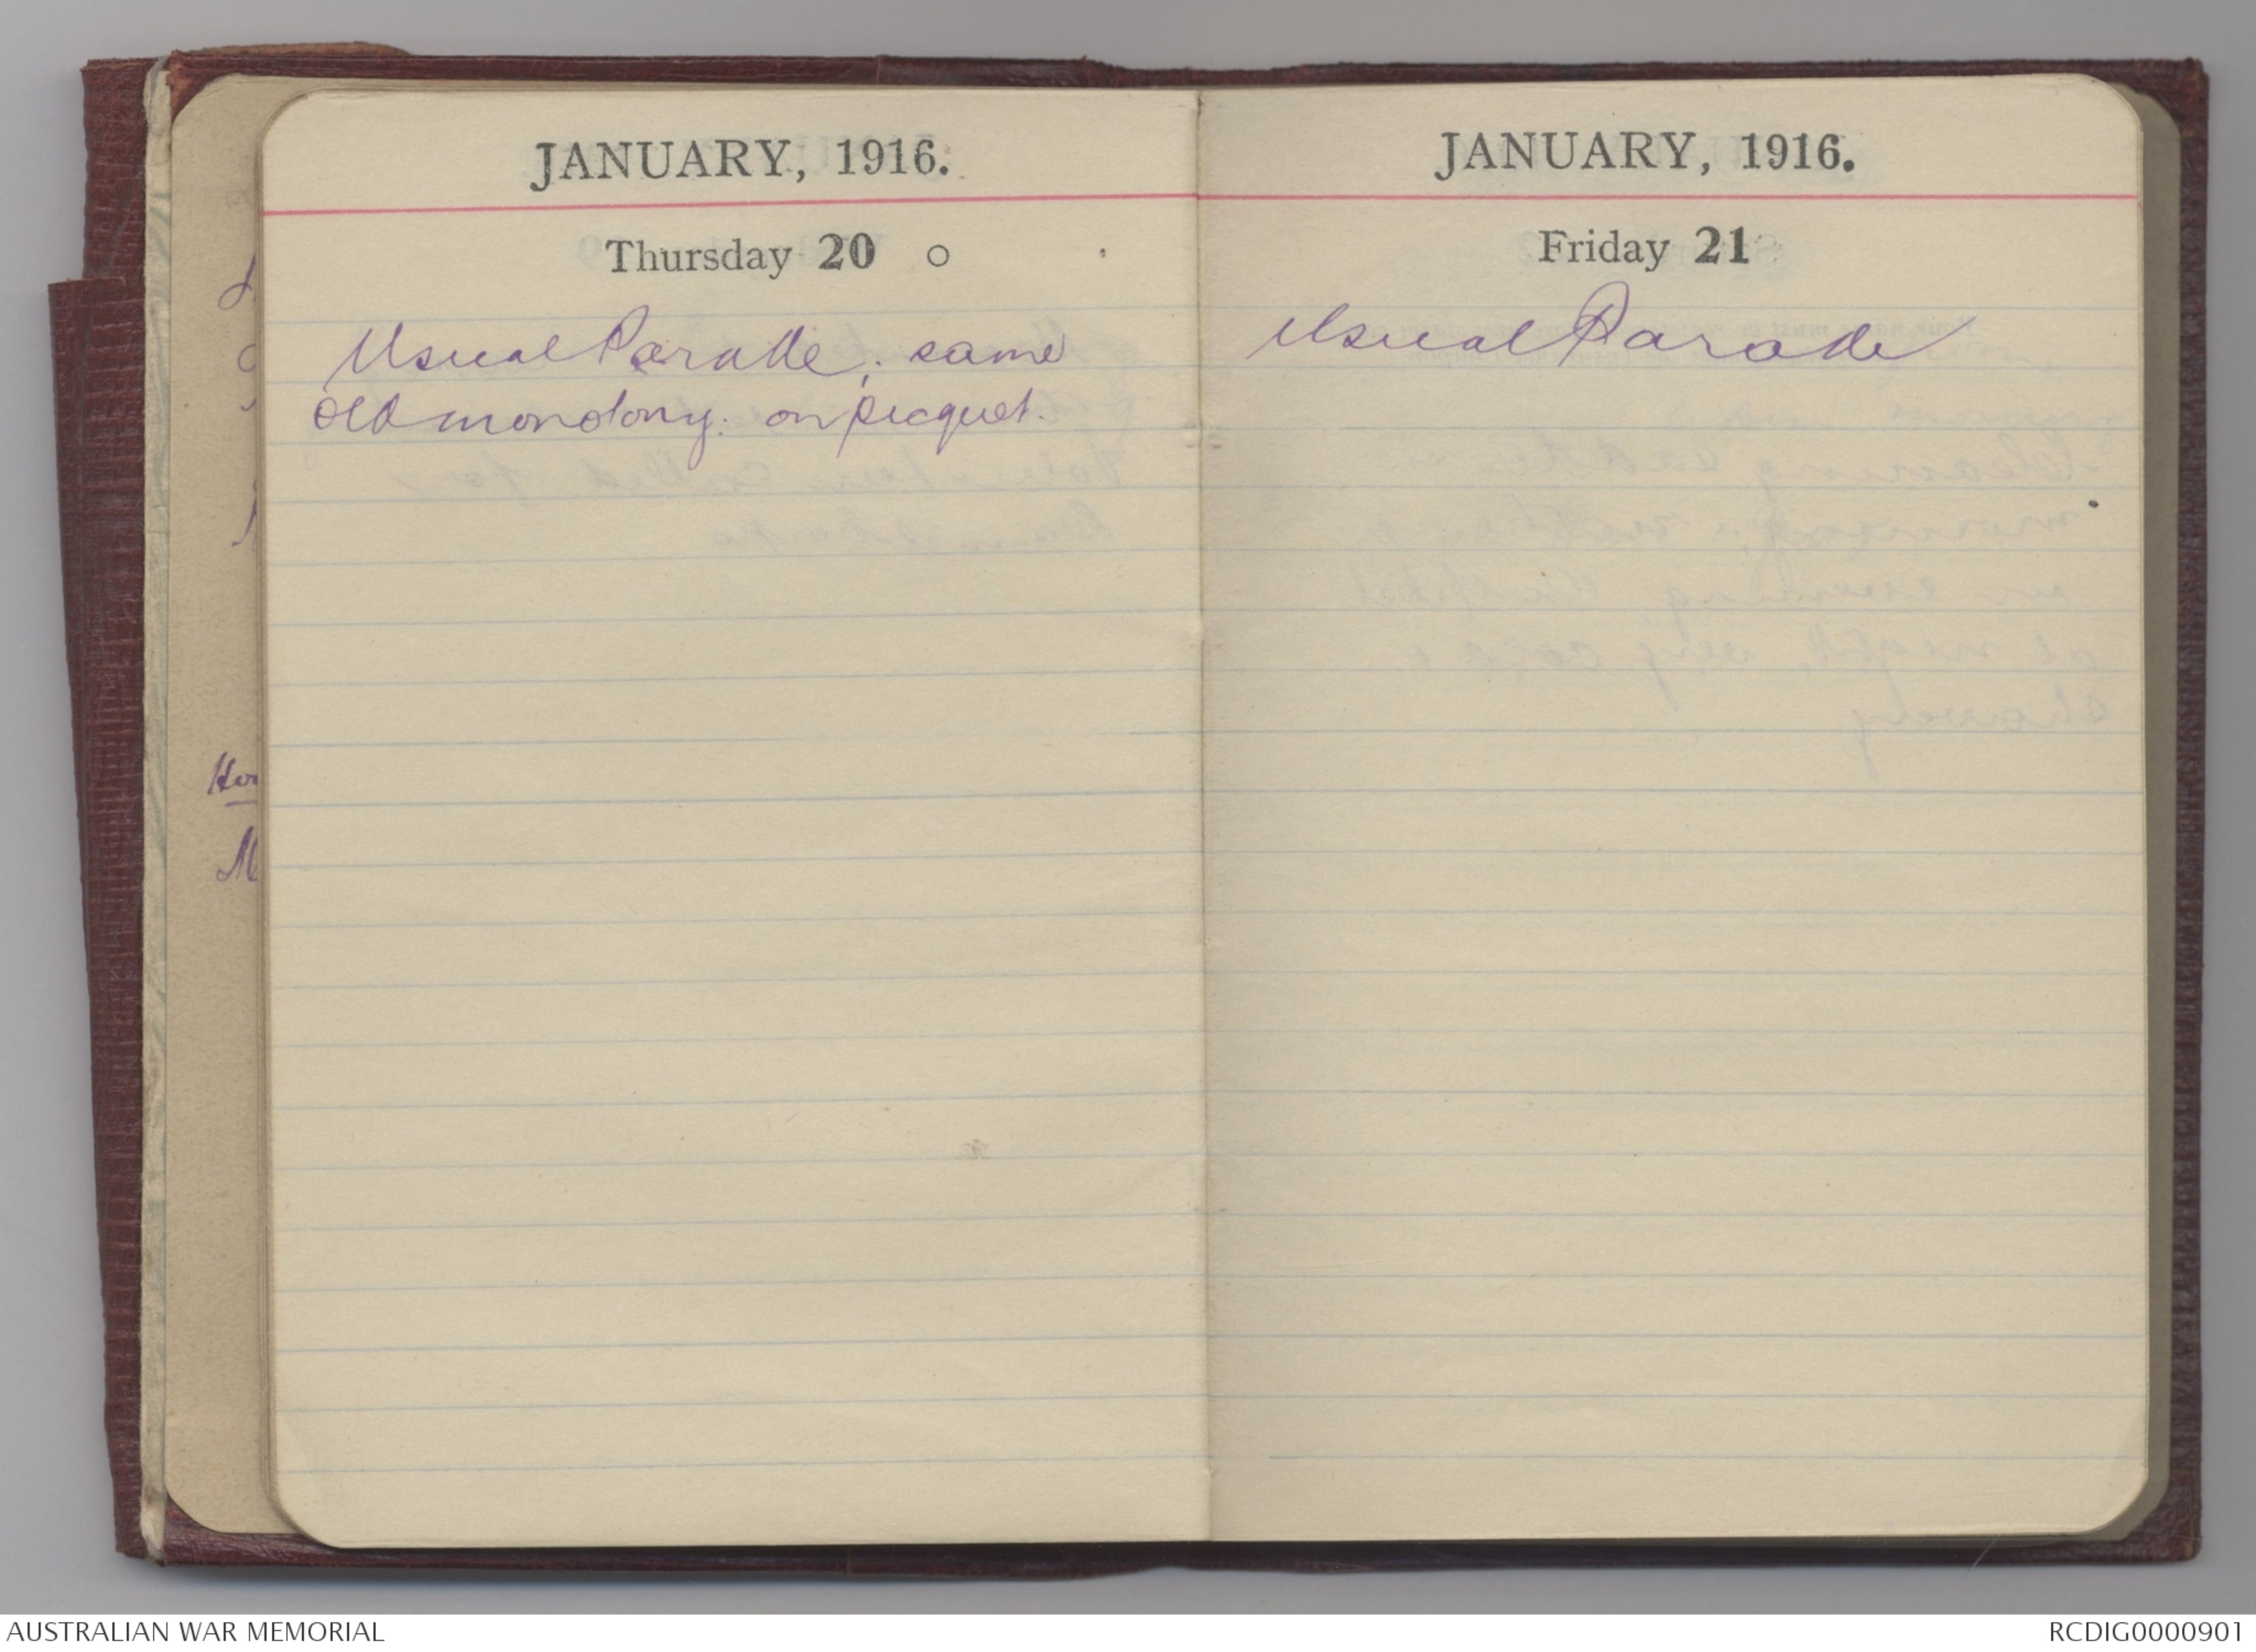 JANUARY, 1916.
Thursday 20 ○
Usual Parade; same
old monotony. on picquet.
JANUARY, 1916.
Friday 21
Usual Parade
AUSTRALIAN WAR MEMORIAL
RCDIG0000901